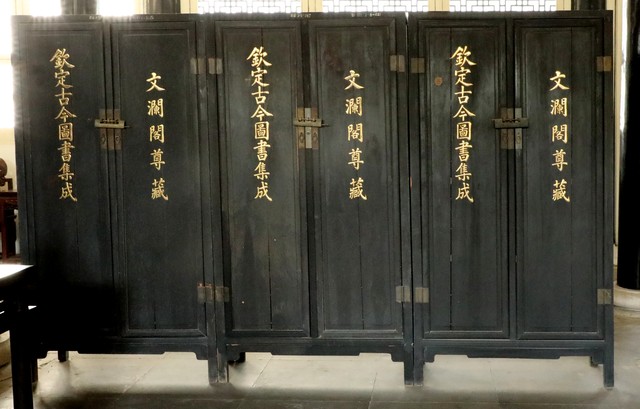 欽定古今圖書集成
文瀾閣尊藏
欽定古今圖書集成
文瀾閣尊藏
欽定古今圖書集成
文瀾閣尊藏